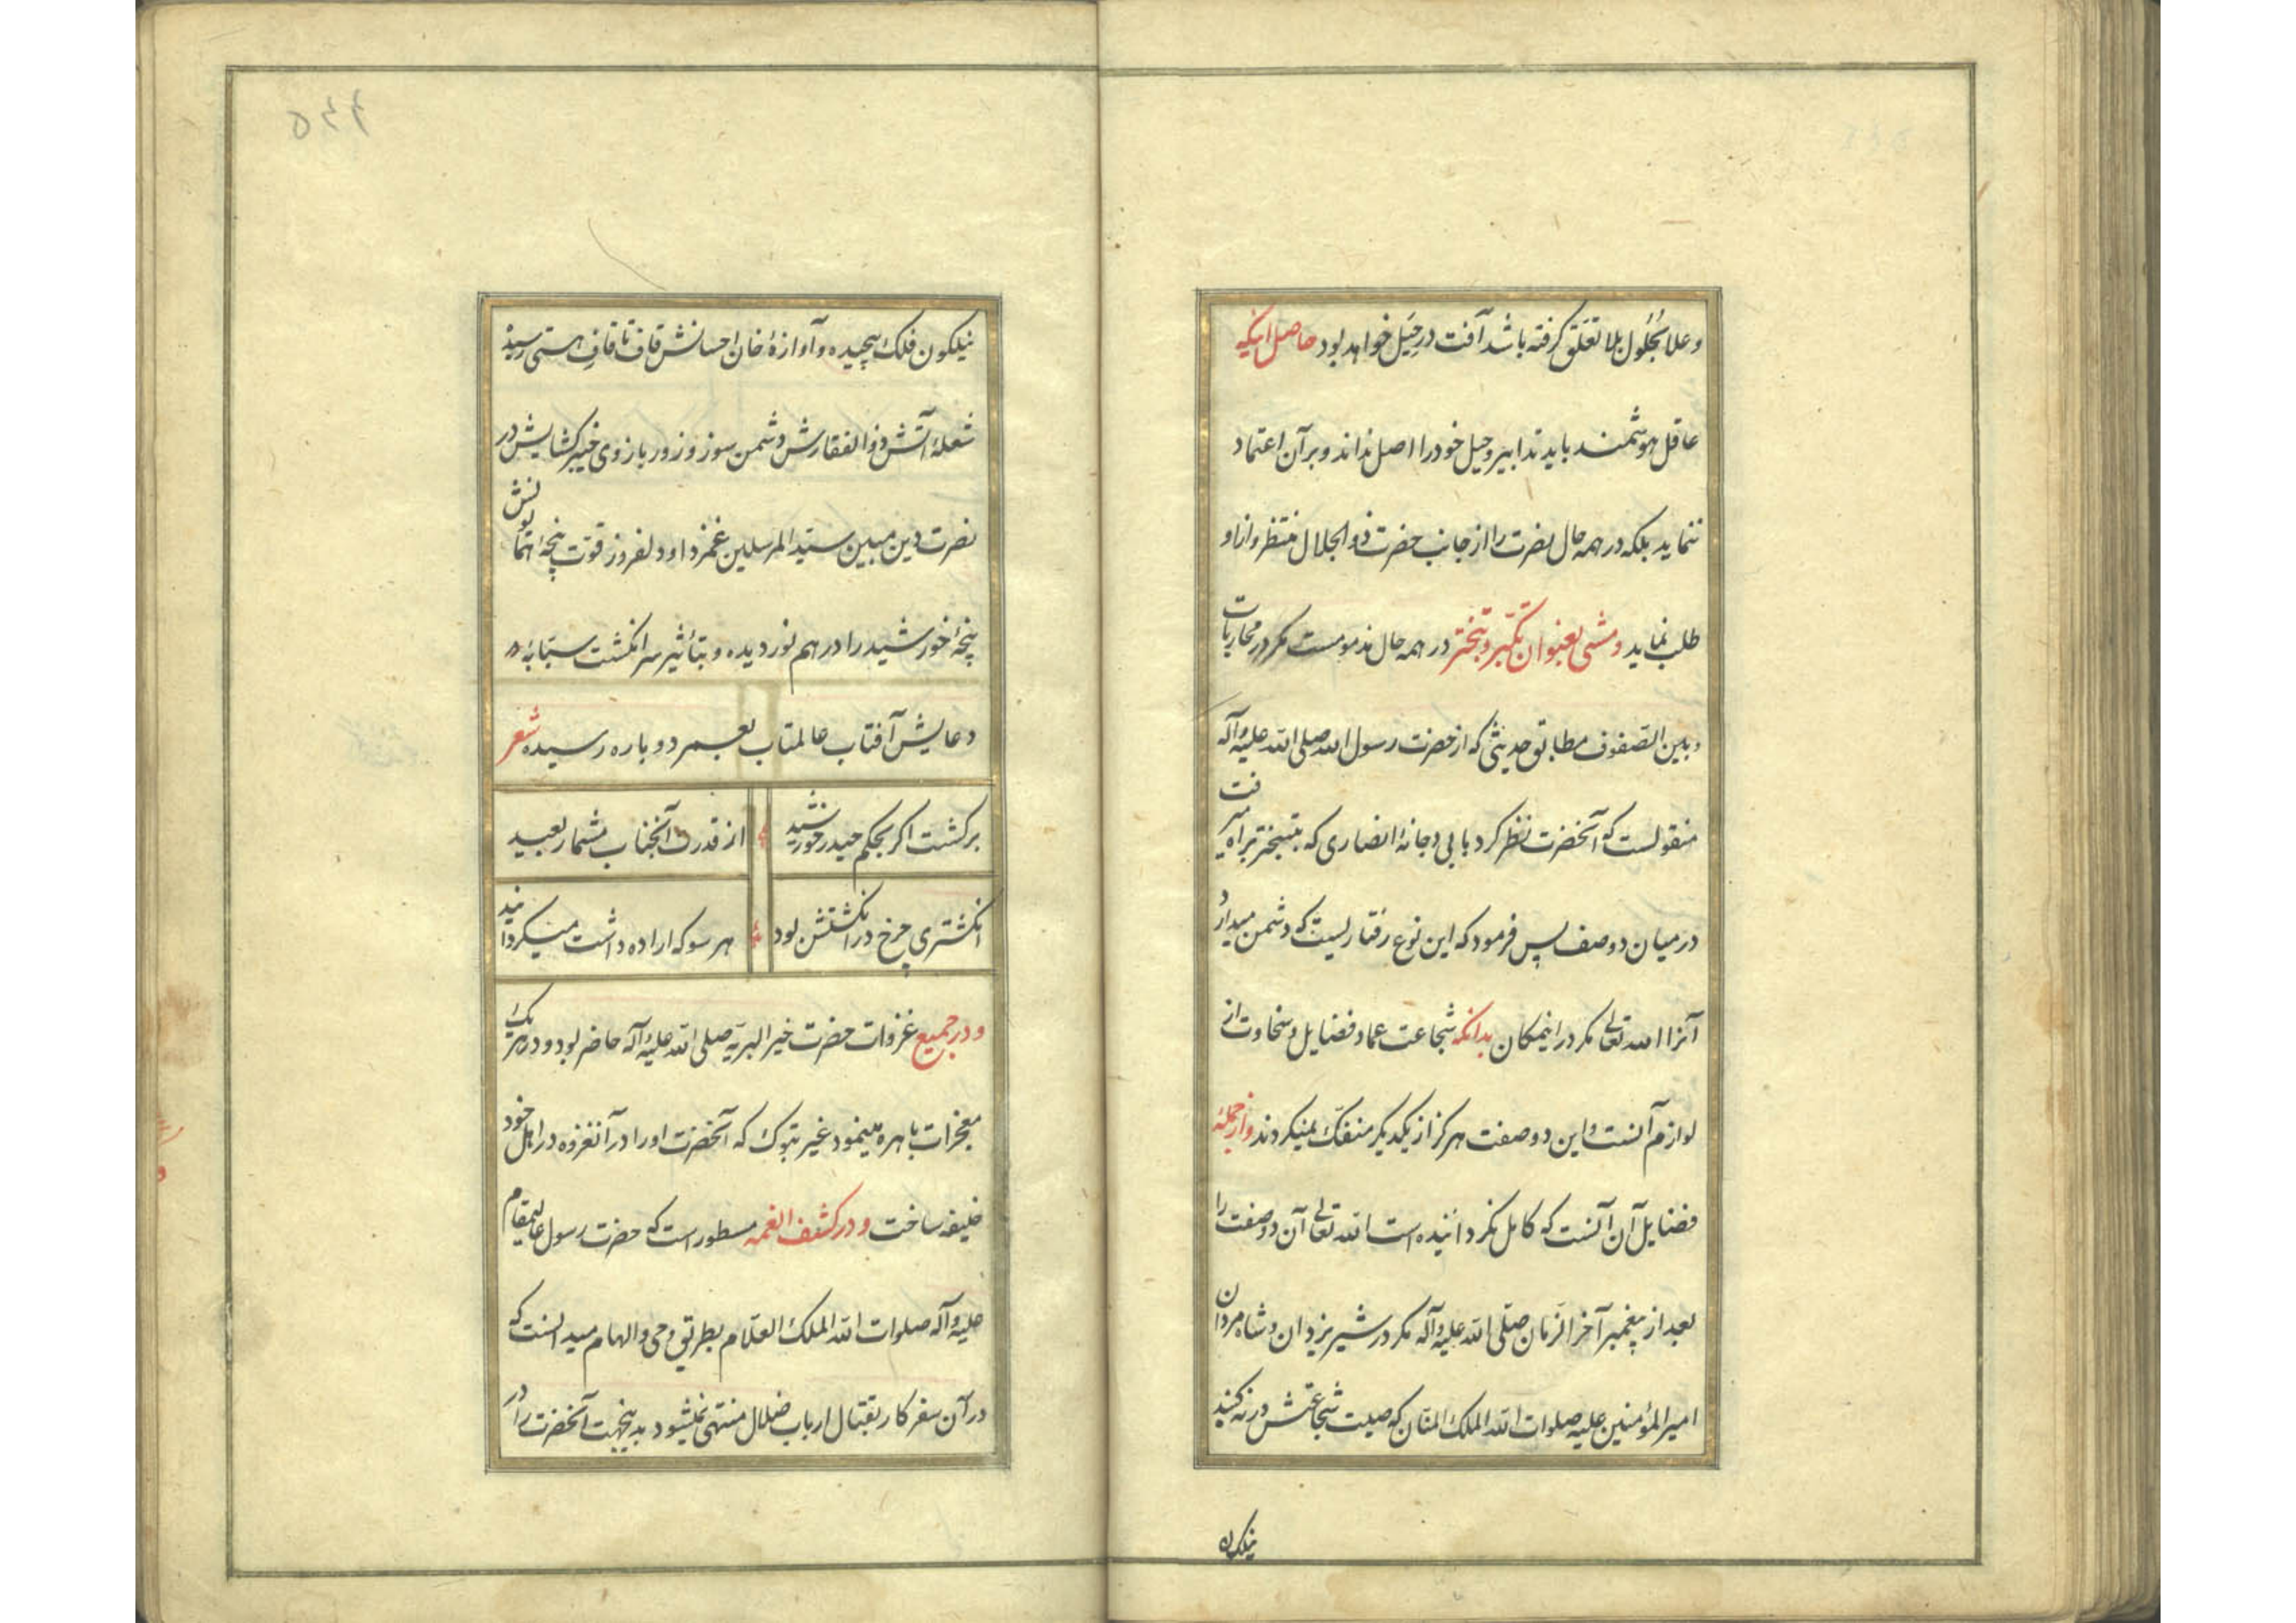 وعلا بحُلُول بلا تعَلّق گرفته باشد آفت در حِیَل خواهد بود حاصل اینکه
عاقل هوشمند باید تدابیر و حیل خود را اصل نداند و بر آن اعتماد
ننماید بلکه در همه حال نصرت را از جانب حضرت ذو الجلال منتظر و از او
طلب نماید و مشی بعنوان تکبّر و تبختر در همه حال مذمومست مکر در محاربات
و بین الصّفوف مطابق حدیثی که از حضرت رسول الله صلی الله علیه و آله
منقولست که آنحضرت نظر کرد بابی دجانهٔ انصاری که بتبختر براه میرفت
در میان دو صف پس فرمود که این نوع رفتاریست که دشمن میدارد
آنرا الله تعالی مکر در اینمکان بدانکه شجاعت عماد فضایل و سخاوت از
لوازم آنست و این دو صفت هرکز از یکدیکر منفکّ نمیکردند و از جملهٔ
فضایل آن آنست که کامل نکردانیده است الله تعالی آن دو صفت را
بعد از پیغمبر آخر الزمان صلّی الله علیه و آله مکر در شیر یزدان و شاه مردان
امیر المؤمنین علیه صلوات الله الملک المنّان که صیت شجاعتش در نه کنبد
نیلکون
۵۴۶
نیلکون فلک پیچیده و آوازهٔ خان احسانش قاف تا قاف هستی رسیده
شعلهٔ آتش ذو الفقارش دشمن سوز و زور بازوی خیبر کشایش در
نصرت دین مبین سیّد المرسلین غمزدا و دلفروز قوّت پنجهٔ توانش
پنجهٔ خورشید را در هم نوردیده و بتأثیر سر انکشت سبّابهٔ
دعایش آفتاب عالمتاب بعصر دوباره رسیده شعر
برکشت اکر بحکم حیدر خورشید از قدرت آنجناب مشمار بعید
انکشتری چرخ در انکشتش بود هر سو که اراده داشت میکردانید
و در جمیع غزوات حضرت خیر البریّه صلی الله علیه و آله حاضر بود و در هر یک
معجزات باهره مینمود غیر تبوک که آنحضرت او را در آنغزوه در اهل خود
خلیفه ساخت و در کشف الغمه مسطور است که حضرت رسول عالیمقام
علیه و آله صلوات الله الملک العلّام بطریق وحی و الهام میدانست که
در آن سفر کار بقتال ارباب ضلال منتهی نمیشود بدینجهت آنحضرت را در